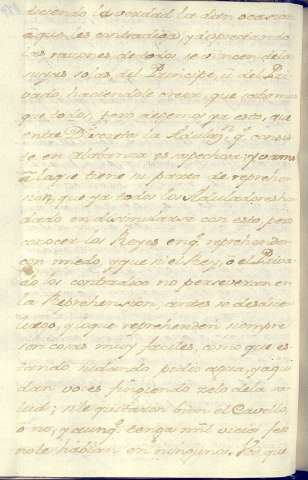 diciendo la verdad la dan ocasion
a que les contradigan, y despreciando
las razones de todos se vencen de las
suyas solas, del Principe, u del Pri
vado, haciendole creer, que sabe mas
que todos, pero dejemos ya esto, que
entre Discreta la Adulaz.n q.e consis
te en alabanza es sospechosa, y como
a la que tiene su parte de reprehen
sion, que ya todos los Aduladores han
dado en disimularse con esto, pero
conocer los Reyes en q.e reprehenden
con miedo, y que si el Rey, o el Priva
do los contradice no perseveran en
la Reprehension, antes se desdicen
luego, y que reprehenden siempre
son cosas muy faciles, como que es
tando sudando pidio agua, y a qui
dan voces fingiendo zelo de la sa
lud; si le quitaron bien el Cavello,
o no, y aunq.e tenga mil vicios feos
no le hablan en ninguno. Los que